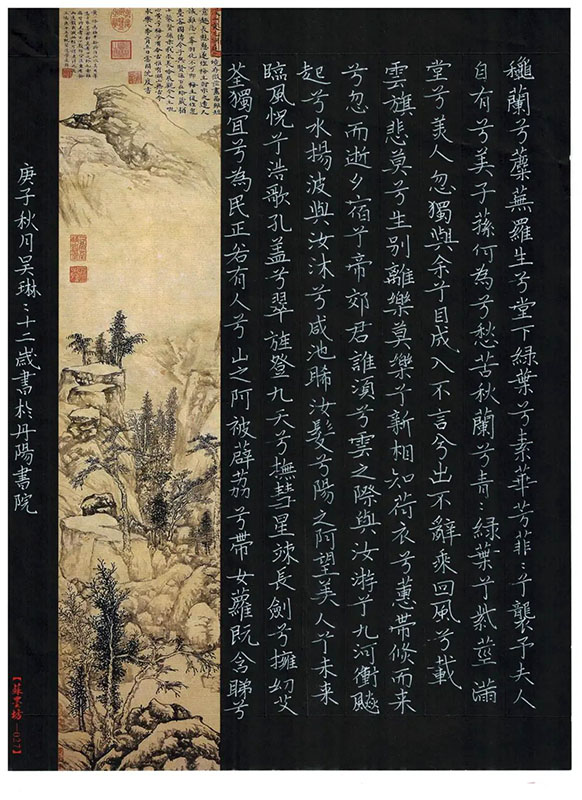 穐蘭兮蘪蕪羅生兮堂下綠葉兮素華芳菲〻兮襲予夫人
自有兮美子蓀何為兮愁苦秋蘭兮青〻綠葉兮紫莖滿
堂兮美人忽獨與余兮目成入不言兮出不辭乘回風兮載
雲旗悲莫兮生別離樂莫樂兮新相知荷衣兮蕙帶倏而来
兮忽而逝夕宿兮帝郊君誰須兮雲之際與汝游兮九河衝飇
起兮水揚波與汝沐兮咸池晞汝髮兮陽之阿望美人兮未来
臨風怳兮浩歌孔盖兮翠旌登九天兮撫彗星竦長劍兮擁幼艾
荃獨宜兮為民正若有人兮山之阿被薜荔兮帶女蘿既含睇兮
庚子秋月吴琳〻十二歲書於丹陽書院
【蘇墨坊—027】